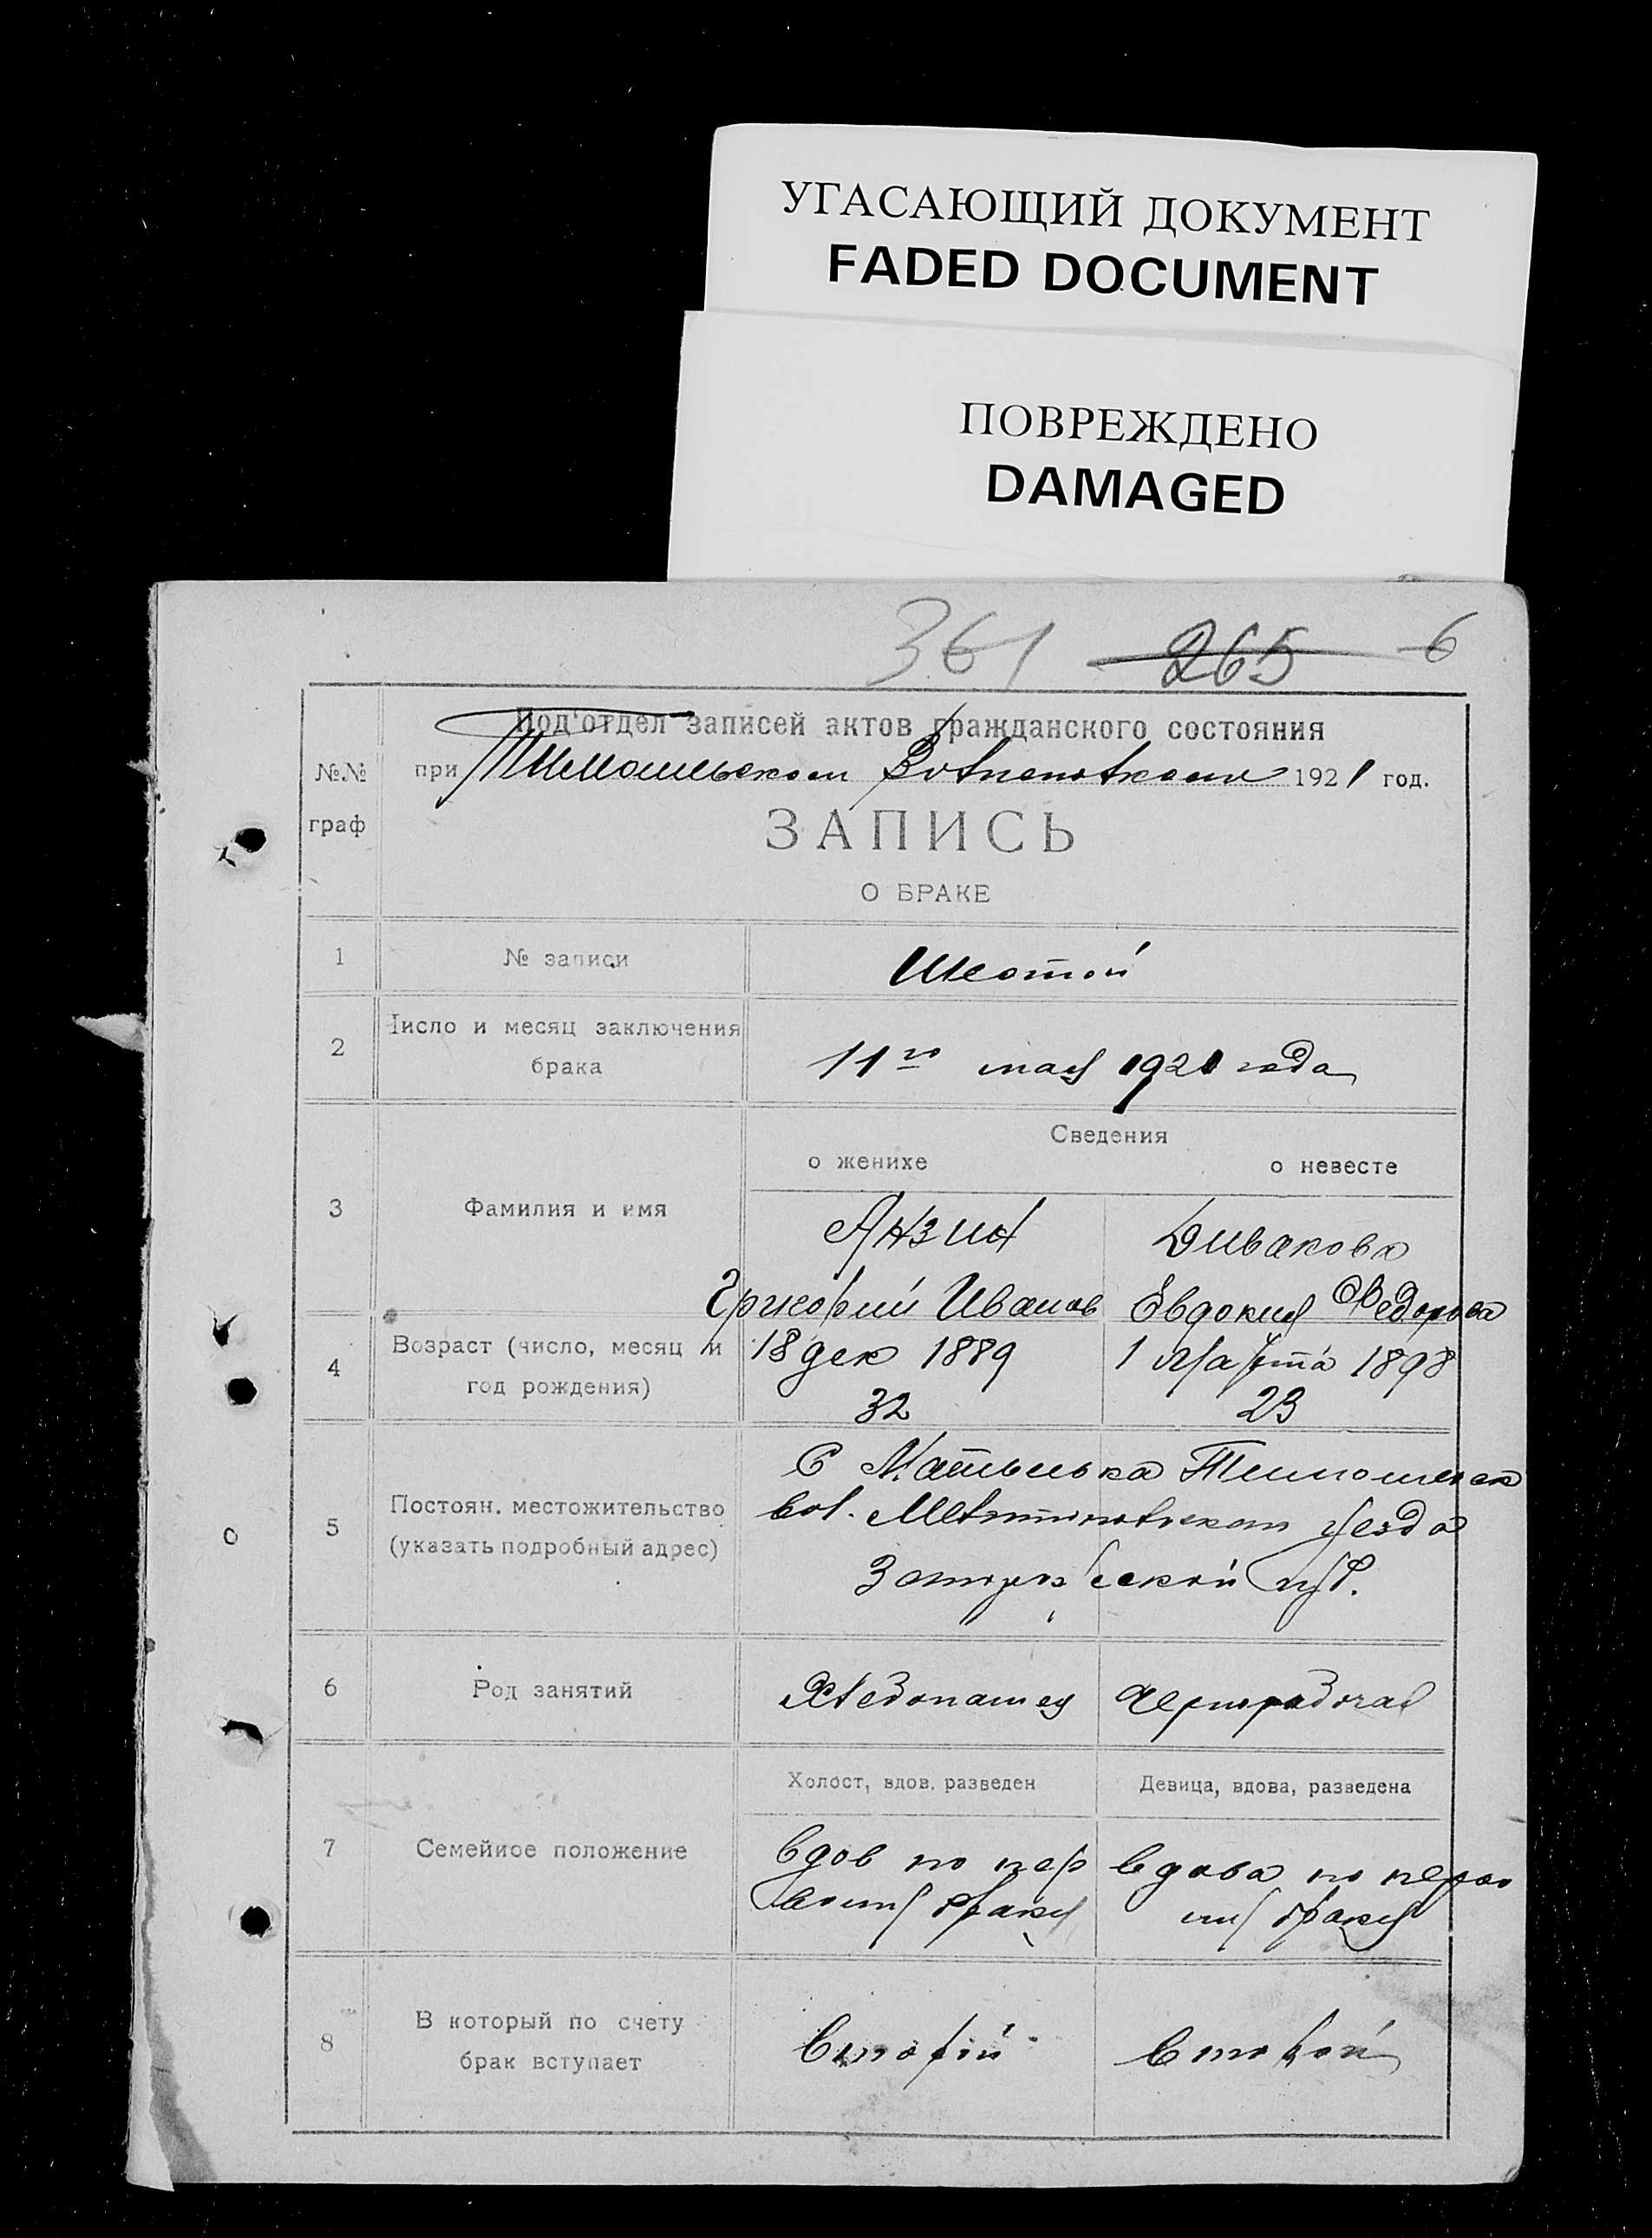 УГАСАЮЩИЙ ДОКУМЕНТ
FADED DOCUMENT
ПОВРЕЖДЕНО
DAMAGED
361 265 6
Под'отдел записей актов гражданского состояния
№№ граф
при 1921 год.
ЗАПИСЬ
О БРАКЕ
1 № записи Шестой
2 Число и месяц заключения
брака 11го мая 1921 года
Сведения
о женихе о невесте
3 Фамилия и имя Анзин Дивакова
Григорий Иванов Евдокия Федорова
4 Возраст (число, месяц и 18 дек 1889 1 Марта 1898
год рождения) 32 23
С
5 Постоян. местожительство вол. уезда
(указать подробный адрес) Запорожской губ.
6 Род занятий Хлебопашец Чернорабочая
Холост, вдов. разведен Девица, вдова, разведена
7 Семейное положение вдов по пер вдова по перво
вому браку му браку
8 В который по счету
брак вступает второй второй